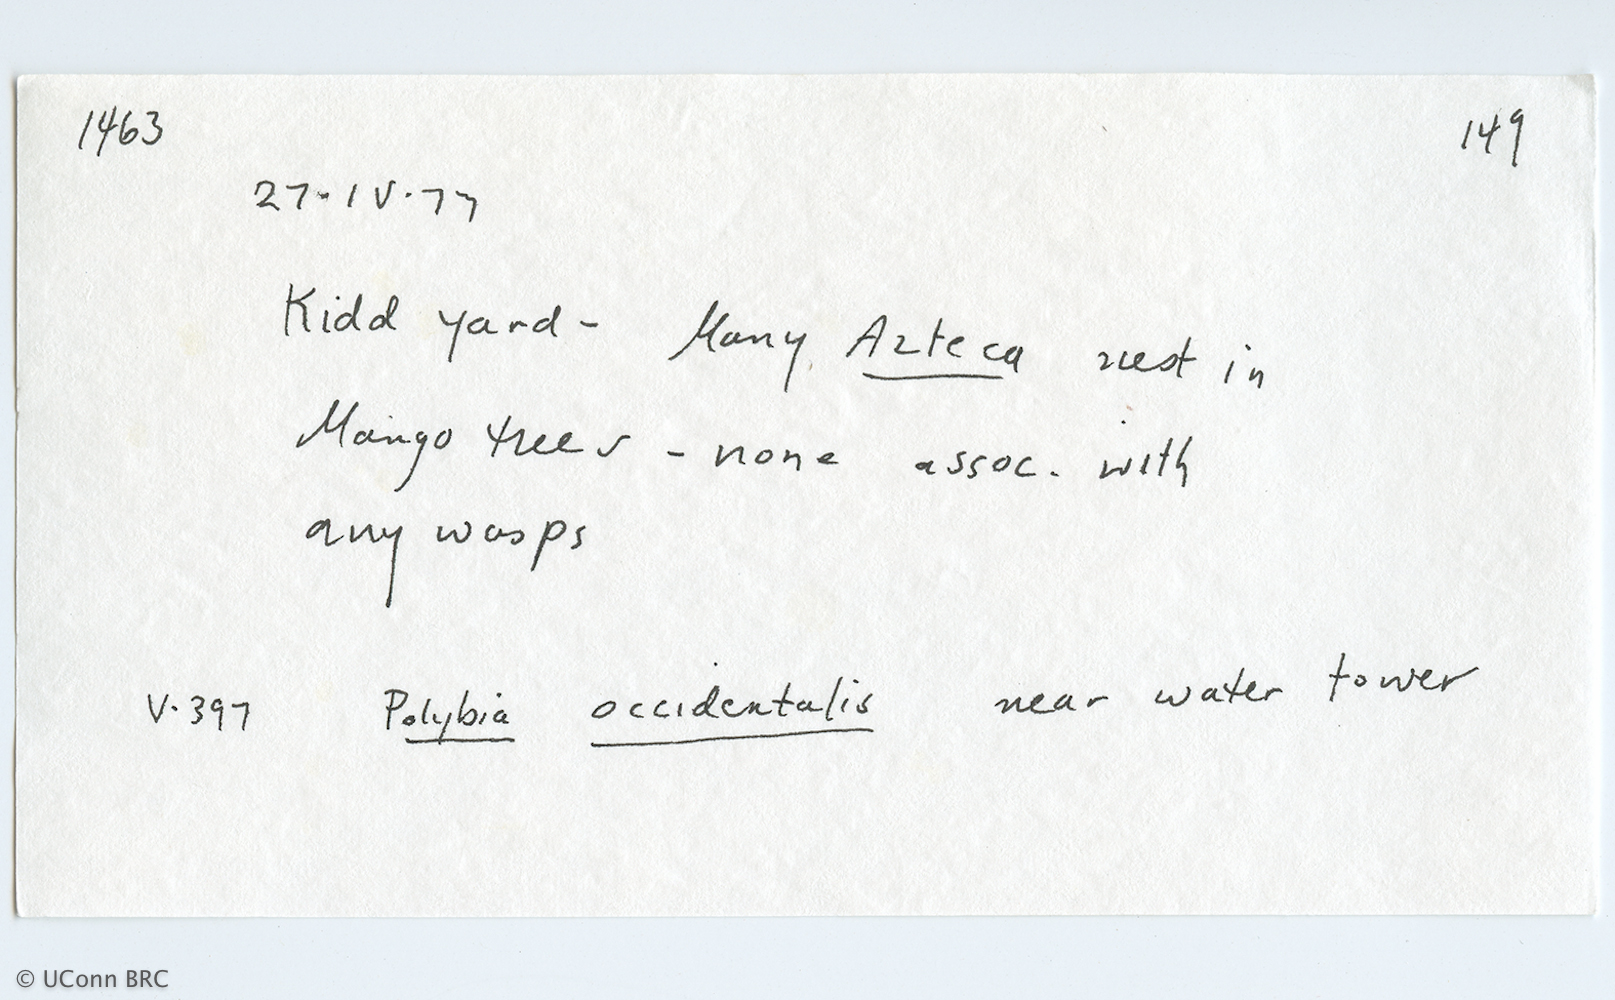 1463 149
27·IV·77
Kidd yard- Many Azteca nest in
Mango trees - none assoc. with
any wasps
V·397 Polybia occidentalis near water tower
© UConn BRC